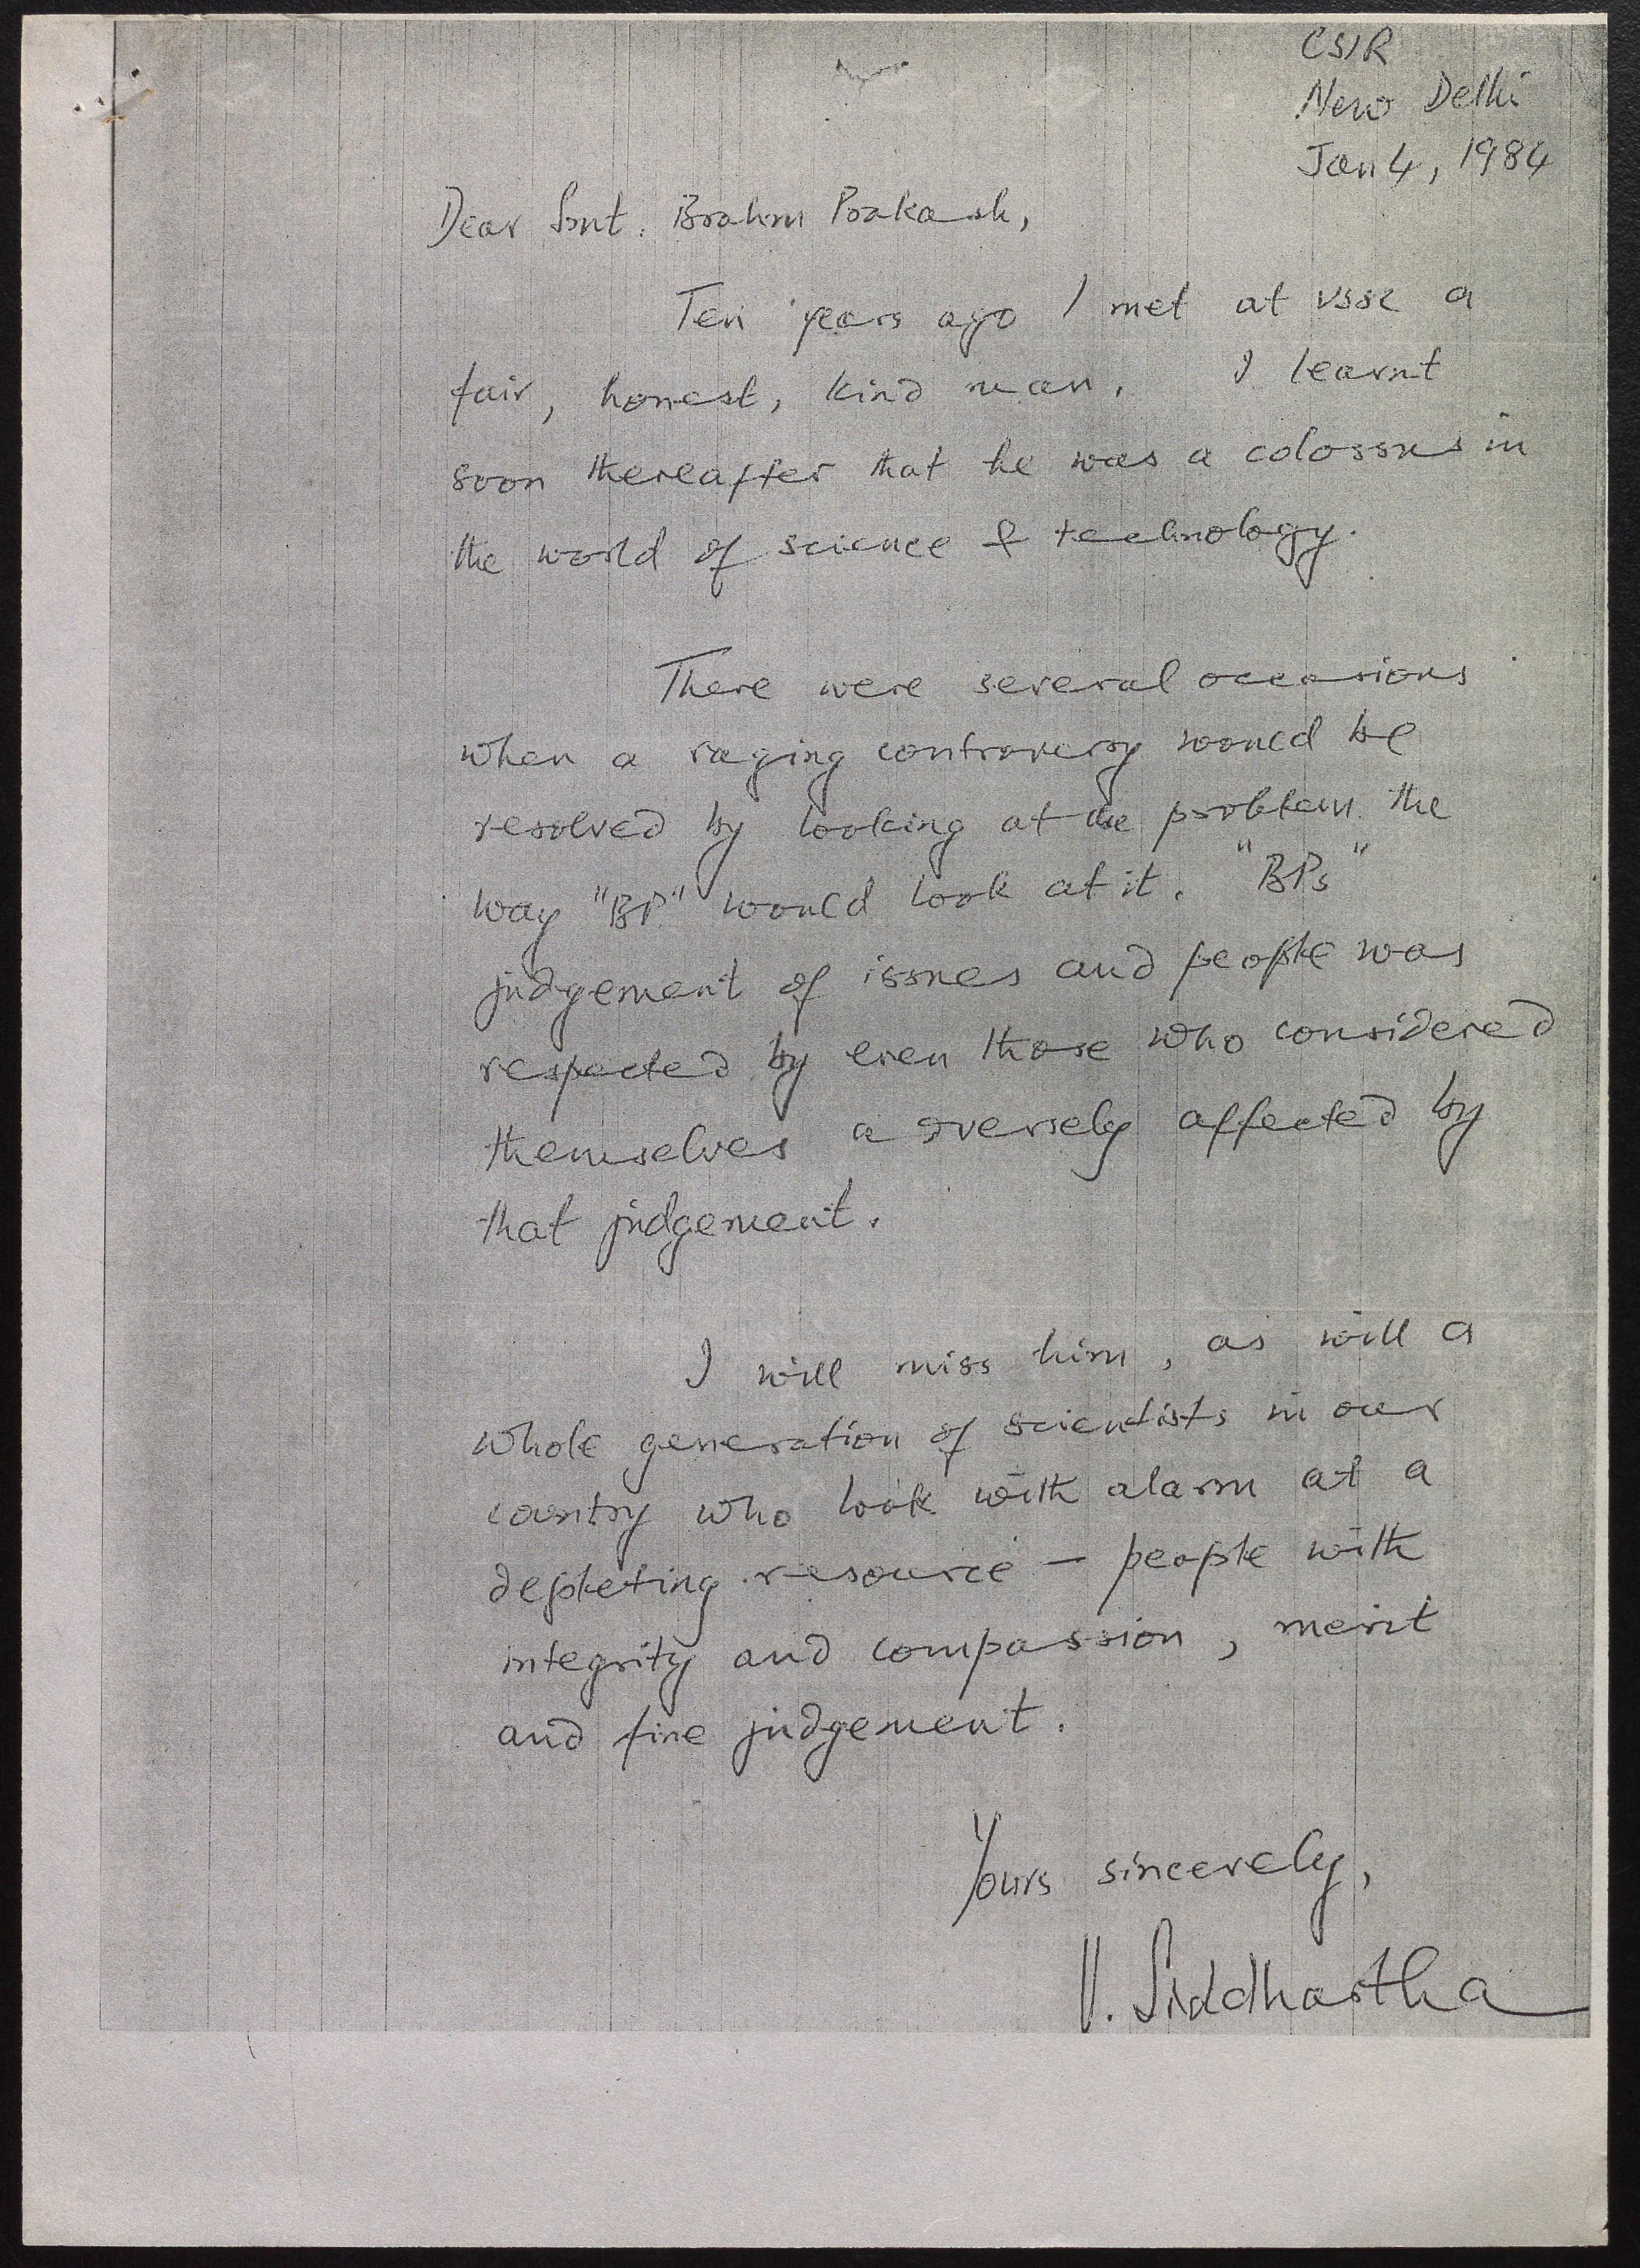 CSIR
New Delhi
Jan 4, 1984
Dear Smt. Brahm Prakash,
Ten years ago I met at VSSC a
fair, honest, kind man. I learnt
soon thereafter that he was a colossus in
the world of science & technology.
There were several occasions
when a raging controversy would be
resolved by looking at the problem the
way "BP" would look at it. "BPs"
judgement of issues and people was
respected by even those who considered
themselves adversely affected by
that judgement.
I will miss him, as will a
whole generation of scientists in our
country who look with alarm at a
depleting resource — people with
integrity and compassion, merit
and fine judgement.
Yours sincerely,
V. Siddhartha